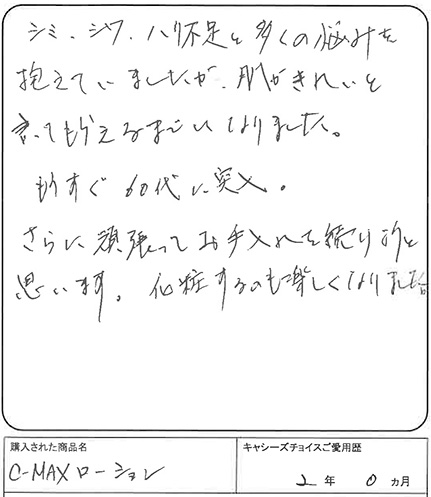 シミ、シワ、ハリ不足と多くの悩みを
抱えていましたが、肌がきれいと
言ってもらえるまでになりました。
もうすぐ60代に突入。
さらに頑張ってお手入れを続けようと
思います。化粧するのも楽しくなりました。
購入された商品名
キャシーズチョイスご愛用歴
C-MAXローション
2年 0ヵ月